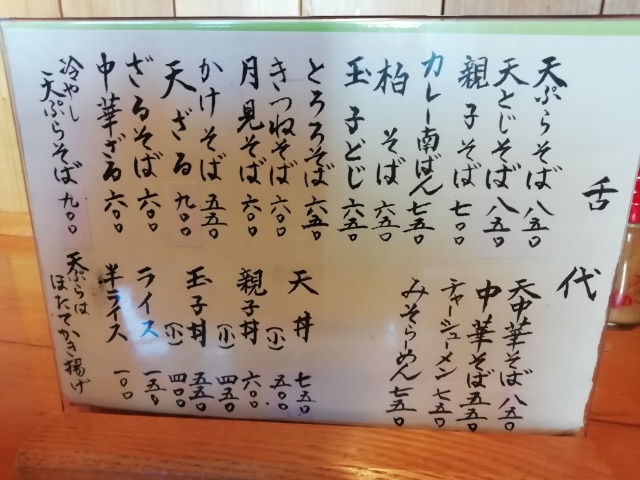 舌代
天ぷらそば 八五〇
天とじそば 八五〇
親子そば 七〇〇
カレー南ばん 七五〇
柏そば 六五〇
玉子とじ 六五〇
とろろそば 六五〇
きつねそば 六〇〇
月見そば 六〇〇
かけそば 五五〇
天ざる 九〇〇
ざるそば 六〇〇
中華ざる 六〇〇
冷やし天ぷらそば 九〇〇
天中華そば 八五〇
中華そば 五五〇
チャーシューメン 七五〇
みそらーめん 七五〇
天丼 七五〇
(小) 五〇〇
親子丼 六〇〇
(小) 四五〇
玉子丼 五五〇
(小) 四〇〇
ライス 一五〇
半ライス 一〇〇
天ぷらは
ほたてかき揚げ